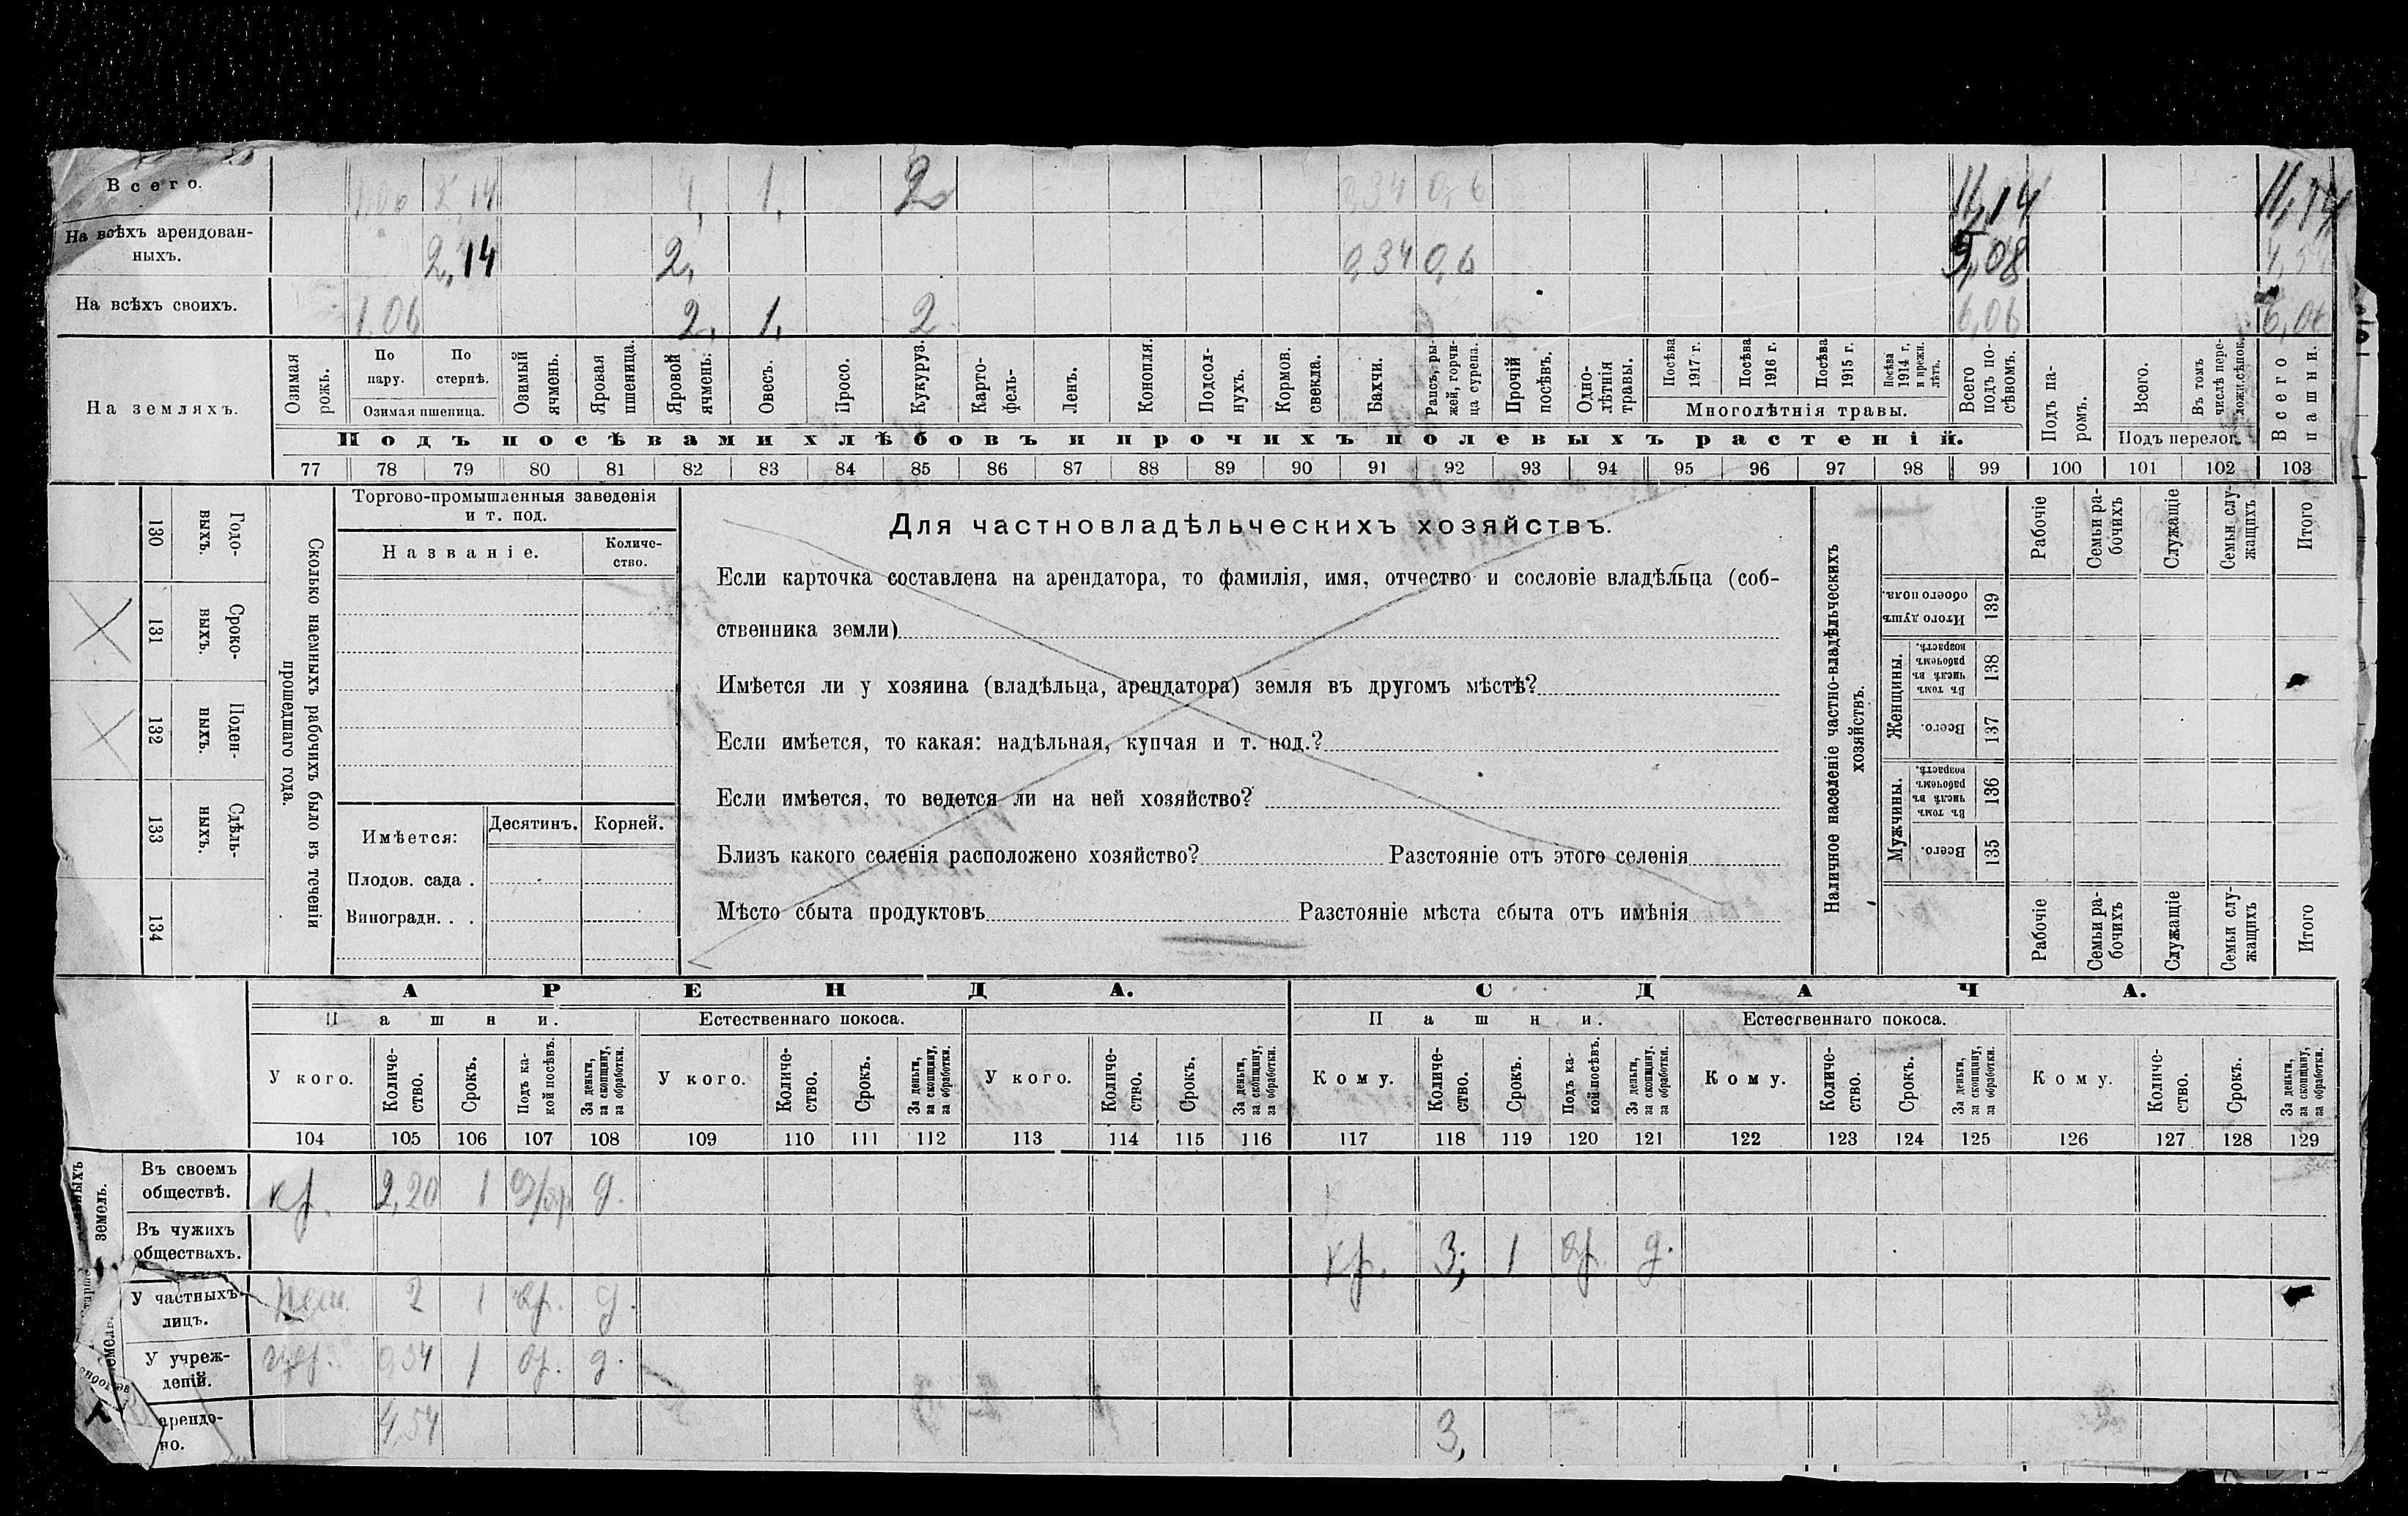 Всего. 2,14 4, 1, 2 0,34 0,6 11,14 11,14
На всѣхъ арендован-
ныхъ. 2,14 2, 0,34 0,6 5,08 4,54
На всѣхъ своихъ. 1,06 2, 1, 2 6,06 6,06
На земляхъ.
Озимая рожь.
По пару.
По стернѣ.
Озимая пшеница.
Озимый ячмень.
Яровая пшеница.
Яровой ячмень.
Овесъ.
Просо.
Кукуруз.
Карто-
фель-
Ленъ.
Конопля.
Подсол-
нухъ.
Кормов. свекла.
Бахчи.
Рапсъ, ры-
жей, горчи-
ца сурепа.
Прочій посѣвъ.
Одно-
лѣтнія травы.
Посѣва 1917 г.
Посѣва 1916 г.
Посѣва 1915 г.
Посѣва 1914 г. и прежн. лѣтъ.
Многолѣтнія травы.
Всего подъ по-
сѣвомъ.
Подъ па-
ромъ.
Всего.
Въ томъ числѣ пере-
лож. сѣнок.
Подъ перелог.
Всего пашни.
Подъ посѣвами хлѣбовъ и прочихъ полевыхъ растеній.
77 78 79 80 81 82 83 84 85 86 87 88 89 90 91 92 93 94 95 96 97 98 99 100 101 102 103
130 Годо-
выхъ.
131 Сроко-
выхъ.
132 Поден-
ныхъ.
133 Сдѣль-
ныхъ.
134
Сколько наемныхъ рабочихъ было въ теченіи
прошедшаго года.
Торгово-промышленныя заведенія
и т. под.
Названіе.
Количе-
ство.
Имѣется:
Десятинъ. Корней.
Плодов. сада .
Виноградн. . .
Для частновладѣльческихъ хозяйствъ.
Если карточка составлена на арендатора, то фамилія, имя, отчество и сословіе владѣльца (соб-
ственника земли)
Имѣется ли у хозяина (владѣльца, арендатора) земля въ другомъ мѣстѣ?
Если имѣется, то какая: надѣльная, купчая и т. под.?
Если имѣется, то ведется ли на ней хозяйство?
Близъ какого селенія расположено хозяйство? Разстояніе отъ этого селенія
Мѣсто сбыта продуктовъ Разстояніе мѣста сбыта отъ имѣнія
Наличное населеніе частно-владѣльческихъ
хозяйствъ.
Рабочіе
Семьи ра-
бочихъ
Служащіе
Семьи слу-
жащихъ
Итого
Итого душъ обоего пола. 139
Женщины.
Въ томъ числѣ въ рабочемъ возрастѣ. 138
Всего. 137
Мужчины.
Въ томъ числѣ въ рабочемъ возрастѣ. 136
Всего. 135
Рабочіе
Семьи ра-
бочихъ
Служащіе
Семьи слу-
жащихъ
Итого
АРЕНДА. СДАЧА.
Пашни. Естественнаго покоса. Пашни. Естественнаго покоса.
У кого.
Количе-
ство.
Срокъ.
Подъ ка-
кой посѣвъ.
За деньги, за скопщину, за обработки.
У кого.
Количе-
ство.
Срокъ.
За деньги, за скопщину, за обработки.
У кого.
Количе-
ство.
Срокъ.
За деньги, за скопщину, за обработки.
Кому.
Количе-
ство.
Срокъ.
Подъ ка-
кой посѣвъ.
За деньги, за скопщину, за обработки.
Кому.
Количе-
ство.
Срокъ.
За деньги, за скопщину, за обработки.
Кому.
Количе-
ство.
Срокъ.
За деньги, за скопщину, за обработки.
104 105 106 107 108 109 110 111 112 113 114 115 116 117 118 119 120 121 122 123 124 125 126 127 128 129
земель.
Въ своемъ
обществѣ. кр. 2,20 1 д.
Въ чужихъ
обществахъ. кр. 3, 1 д.
У частныхъ
лицъ. 2 1 д.
У учреж-
деній. 1 д.
арендо-
но. 4,54 3,